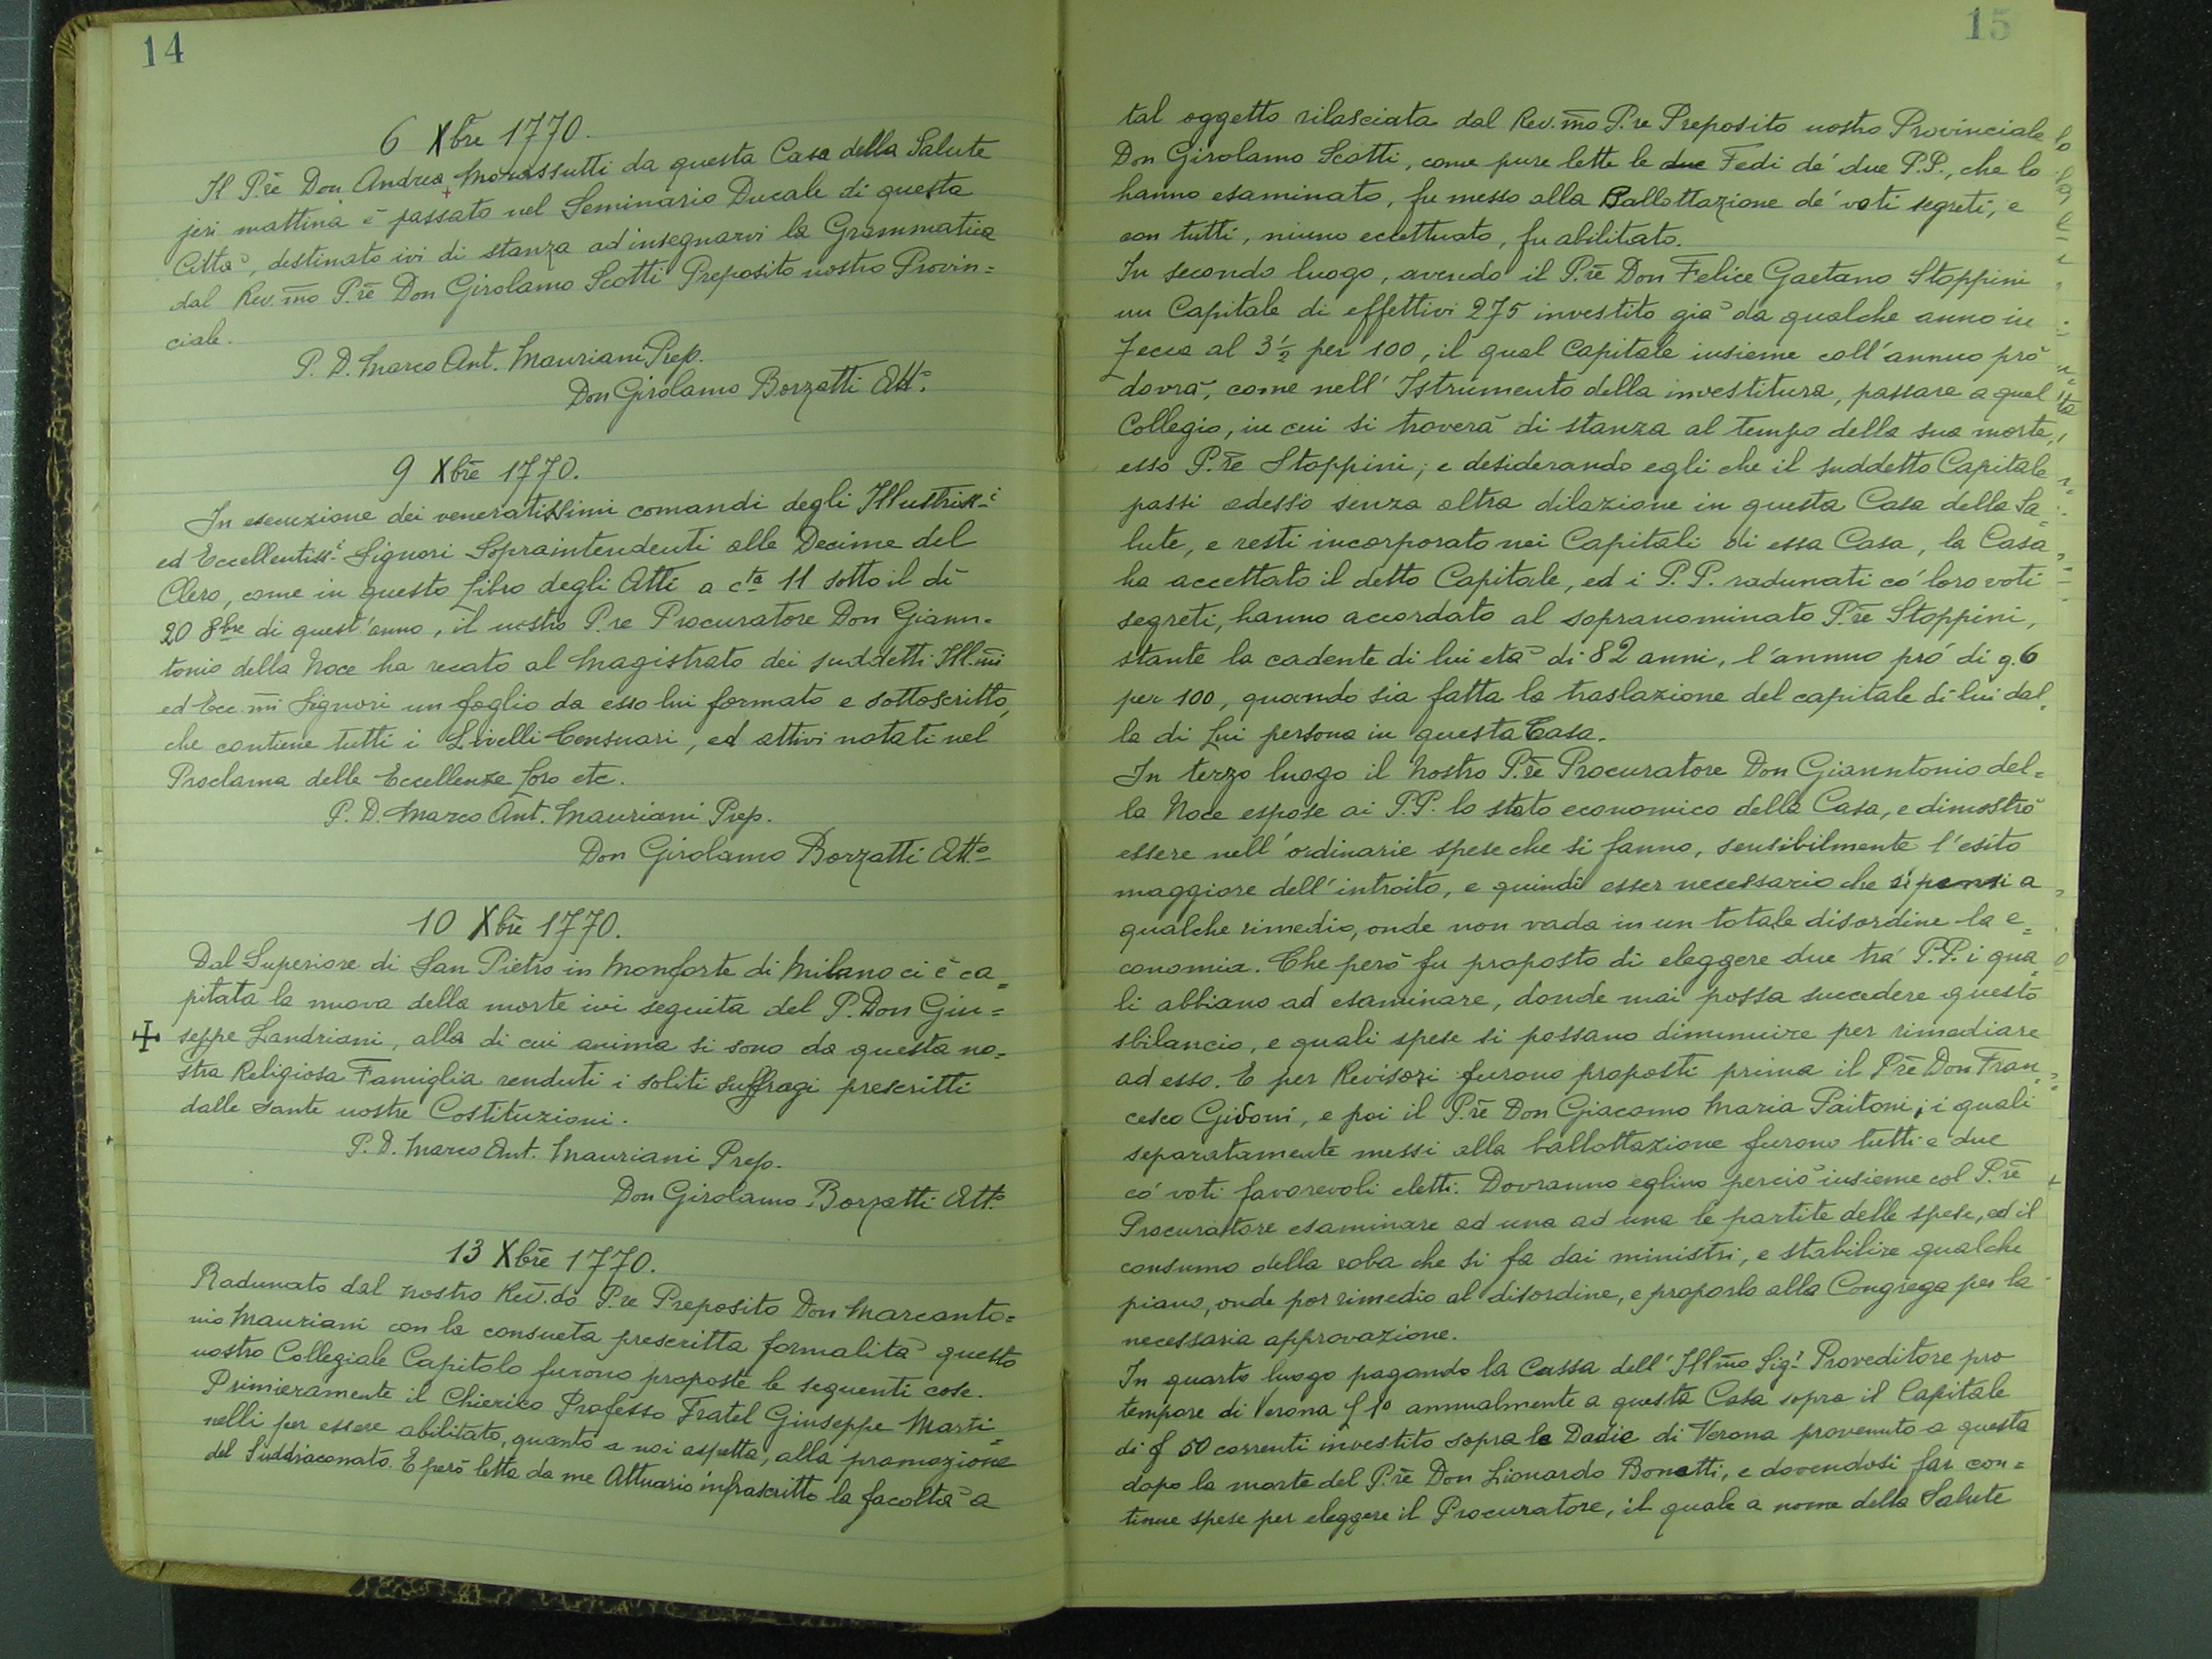 14
6 Xbre 1770.
Il P.re Don Andrea Morassutti da questa Casa della Salute
jeri mattina è passato nel Seminario Ducale di questa
Città, destinato ivi di stanza ad insegnarvi la Grammatica
dal Rev.mo P.re Don Girolamo Scotti Preposito nostro Provin=
ciale.
P. D. Marco Ant. Mauriani Prep.
Don Girolamo Borzatti Att.o
9 Xbre 1770.
In esecuzione dei veneratissimi comandi degli Illustriss.i
ed Eccellentiss.i Signori Sopraintendenti alle Decime del
Clero, come in questo Libro degli Atti a c.ta 11 sotto il dì
20 8bre di quest'anno, il nostro P.re Procuratore Don Giann-
tonio della Noce ha recato al Magistrato dei suddetti Ill.mi
ed Ecc.mi Signori un foglio da esso lui formato e sottoscritto,
che contiene tutti i Livelli Censuari, ed attivi notati nel
Proclama delle Eccellenze Loro etc.
P. D. Marco Ant. Mauriani Prep.
Don Girolamo Borzatti Att.o
10 Xbre 1770.
Dal Superiore di San Pietro in Monforte di Milano ci è ca=
pitata la nuova della morte ivi seguita del P. Don Giu=
seppe Landriani, alla di cui anima si sono da questa no=
stra Religiosa Famiglia renduti i soliti suffragi prescritti
dalle sante nostre Costituzioni.
P. D. Marco Ant. Mauriani Prep.
Don Girolamo Borzatti Att.o
13 Xbre 1770.
Radunato dal nostro Rev.do P.re Preposito Don Marcanto=
nio Mauriani con la consueta prescritta formalità questo
nostro Collegiale Capitolo furono proposte le seguenti cose.
Primieramente il Chierico Professo Fratel Giuseppe Marti=
nelli per essere abilitato, quanto a noi aspetta, alla promozione
del Suddiaconato. E però letta da me Attuario infrascritto la facoltà a
15
tal oggetto rilasciata dal Rev.mo P.re Preposito nostro Provinciale
Don Girolamo Scotti, come pure lette le due Fedi de' due P.P., che lo
hanno esaminato, fu messo alla Ballottazione de' voti segreti, e
con tutti, niuno eccettuato, fu abilitato.
In secondo luogo, avendo il P.re Don Felice Gaetano Stoppini
un Capitale di effettivi 275 investito già da qualche anno in
Zecca al 3 1/2 per 100, il qual Capitale insieme coll'annuo prò
dovrà, come nell'Istrumento della investitura, passare a quel
Collegio, in cui si troverà di stanza al tempo della sua morte,
esso P.re Stoppini; e desiderando egli che il suddetto Capitale
passi adesso senza altra dilazione in questa Casa della Sa=
lute, e resti incorporato nei Capitali di essa Casa, la Casa
ha accettato il detto Capitale, ed i P.P. radunati co' loro voti
segreti, hanno accordato al sopranominato P.re Stoppini,
stante la cadente di lui età di 82 anni, l'annuo prò di g. 6
per 100, quando sia fatta la traslazione del capitale di lui dal=
la di Lui persona in questa Casa.
In terzo luogo il Nostro P.re Procuratore Don Gianntonio del=
la Noce espose ai P.P. lo stato economico della Casa, e dimostrò
essere nell'ordinarie spese che si fanno, sensibilmente l'esito
maggiore dell'introito, e quindi esser necessario che si pensi a
qualche rimedio, onde non vada in un totale disordine la e=
conomia. Che però fu proposto di eleggere due tra' P.P. i qua=
li abbiano ad esaminare, donde mai possa succedere questo
sbilancio, e quali spese si possano diminuire per rimediare
ad esso. E per Revisori furono proposti prima il P.re Don Fran=
cesco Gidoni, e poi il P.re Don Giacomo Maria Paitoni; i quali
separatamente messi alla ballottazione furono tutti e due
co' voti favorevoli eletti. Dovranno eglino perciò insieme col P.re
Procuratore esaminare ad una ad una le partite delle spese, ed il
consumo della roba che si fa dai ministri, e stabilire qualche
piano, onde por rimedio al disordine, e proporlo alla Congrega per la
necessaria approvazione.
In quarto luogo pagando la Cassa dell'Ill.mo Sig.r Proveditore pro
tempore di Verona annualmente a questa Casa sopra il Capitale
di ₰ 50 correnti investito sopra le Dadie di Verona provenuto a questa
dopo la morte del P.re Don Lionardo Bonetti, e dovendosi far con=
tinue spese per eleggere il Procuratore, il quale a nome della Salute